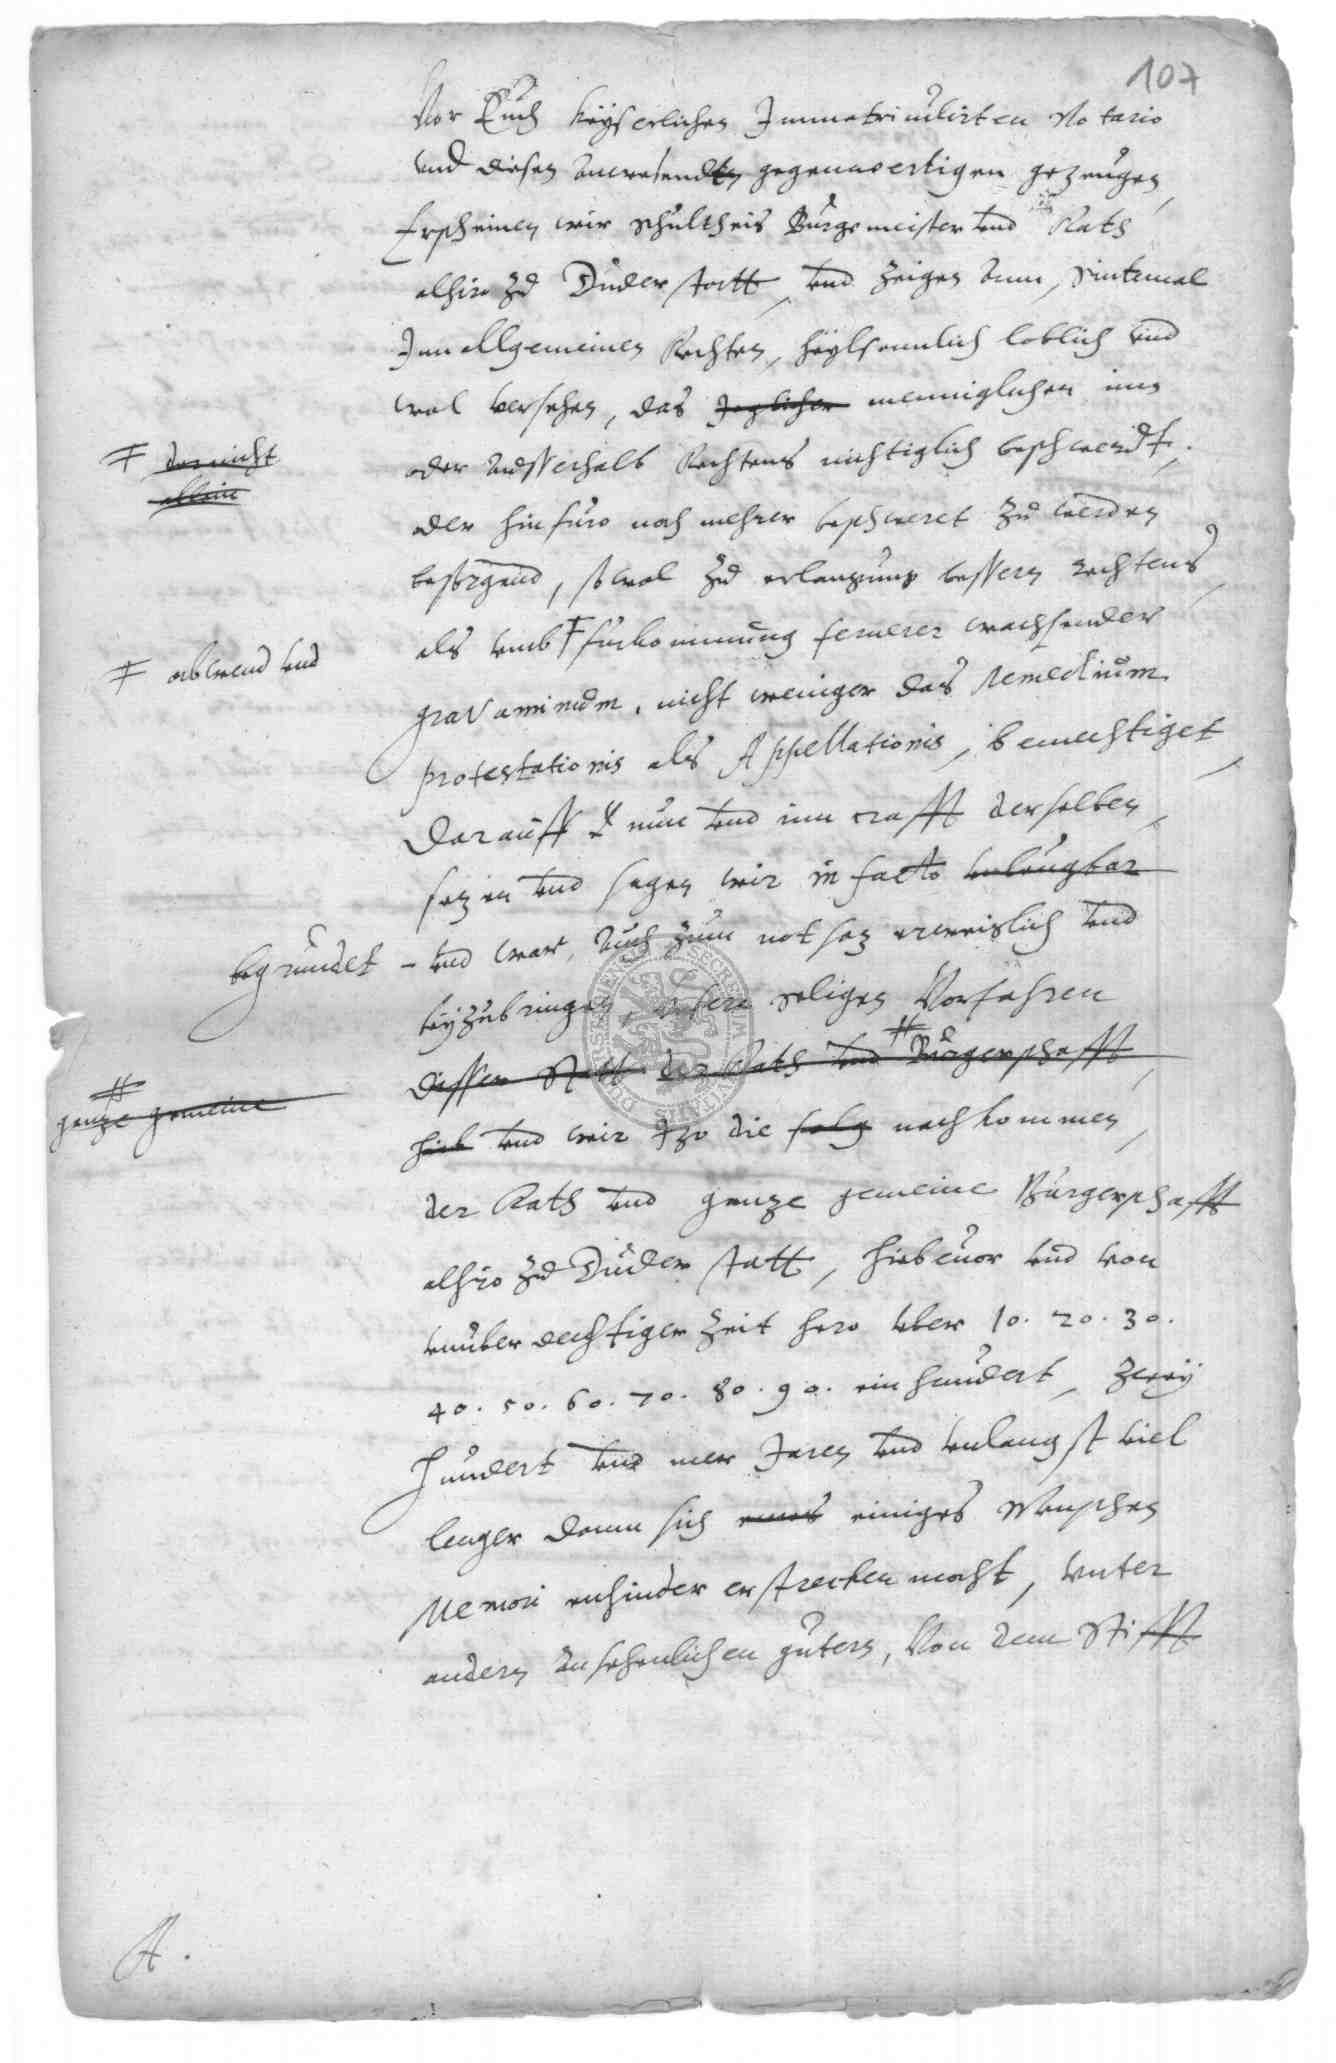 107
Vor Euch Keyserlichen Immatriculirten Notario
vnd diesen anwesenden gegenwertigen gezeugen,
Erscheinen wir Schultheis Burgemeister vnd Rath
alhie zu Duderstatt, vnd zeigen ann, Sintemal
Inn allgemeinen Rechten, heylsamlich loblich vnd
wol versehen, das Jeglicher menniglichen inn
oder ausserhalb Rechtens nichtiglich beschwerdt,
oder hinfuro noch mehrer beschweret zu werden
besorgend, sowol zu erlangung bessern rechtens,
als vmb furkommung fernerer wachsender
gravaminum, nicht weniger das Remedium
protestationis als Appellationis, bemechtiget,
Darauff nun vnd inn crafft derselben,
sezen vnd sagen wir in facto vnleugbar
begründet - vnd war, auch zum notfay erweislich vnd
beyzubringen, vnsere seligen Vorfahren
dieser Statt der Rath vnd Bürgerschafft,
vnd wir Izo die folg nachkommen,
der Rath vnd ganze gemeine Bürgerschafft
alhie zu Duderstatt, hiebeuor vnd von
vnuberdechtiger Zeit hero vber 10. 20. 30.
40. 50. 60. 70. 80. 90. ein hundert, zwey
hundert vnd mer Jaren vnd vnlangst viel
lenger dann sich eines einiges Menschen
Memori enhinder erstrecken mocht, vnter
andern ansehenlichen gutern, Von dem Stifft
der nicht
allein
abwend vnd
ganze gemeine
A.